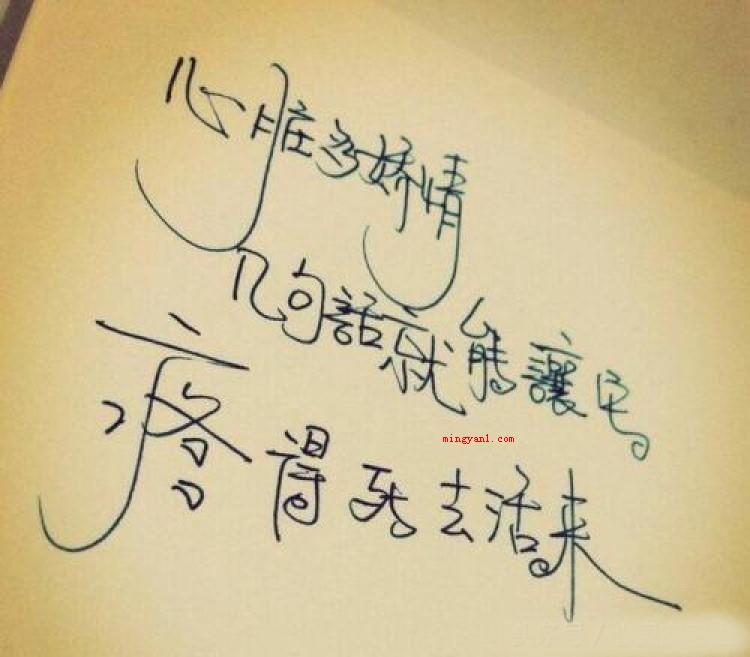 心脏多娇情
几句話就能讓它
mingyanl.com
疼得死去活来